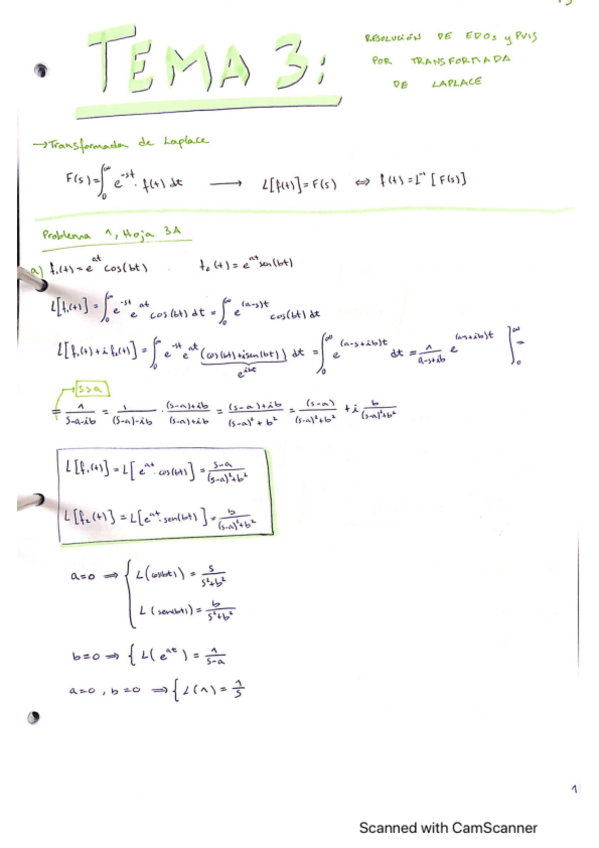 TEMA 3:
RESOLUCIÓN DE EDOs y PVIs
POR TRANSFORMADA
DE LAPLACE
→Transformada de Laplace
F(s)=∫₀^∞ e^{-st}· f(t) dt ⟶ L[f(t)]=F(s) ⇔ f(t)=L⁻¹[F(s)]
Problema 1, Hoja 3A
a) f₁(t)=e^{at} cos(bt) . f₂(t)=e^{at} sen(bt)
L[f₁(t)]=∫₀^∞ e^{-st} e^{at} cos(bt) dt = ∫₀^∞ e^{(a-s)t} cos(bt) dt
L[f₁(t)+i f₂(t)]=∫₀^∞ e^{-st} e^{at} (cos(bt)+isen(bt)) dt = ∫₀^∞ e^{(a-s+ib)t} dt = 1/(a-s+ib) e^{(a-s+ib)t} ]₀^∞ =
e^{ibt}
→ s>a
= 1/(s-a-ib) = 1/((s-a)-ib) · ((s-a)+ib)/((s-a)+ib) = ((s-a)+ib)/((s-a)²+b²) = (s-a)/((s-a)²+b²) + i b/((s-a)²+b²)
L[f₁(t)]=L[e^{at}·cos(bt)]= (s-a)/((s-a)²+b²)
L[f₂(t)]=L[e^{at}·sen(bt)]= b/((s-a)²+b²)
a=0 ⇒ { L(cos(bt)) = s/(s²+b²)
L(sen(bt)) = b/(s²+b²)
b=0 ⇒ { L(e^{at}) = 1/(s-a)
a=0, b=0 ⇒ { L(1) = 1/s
1
Scanned with CamScanner